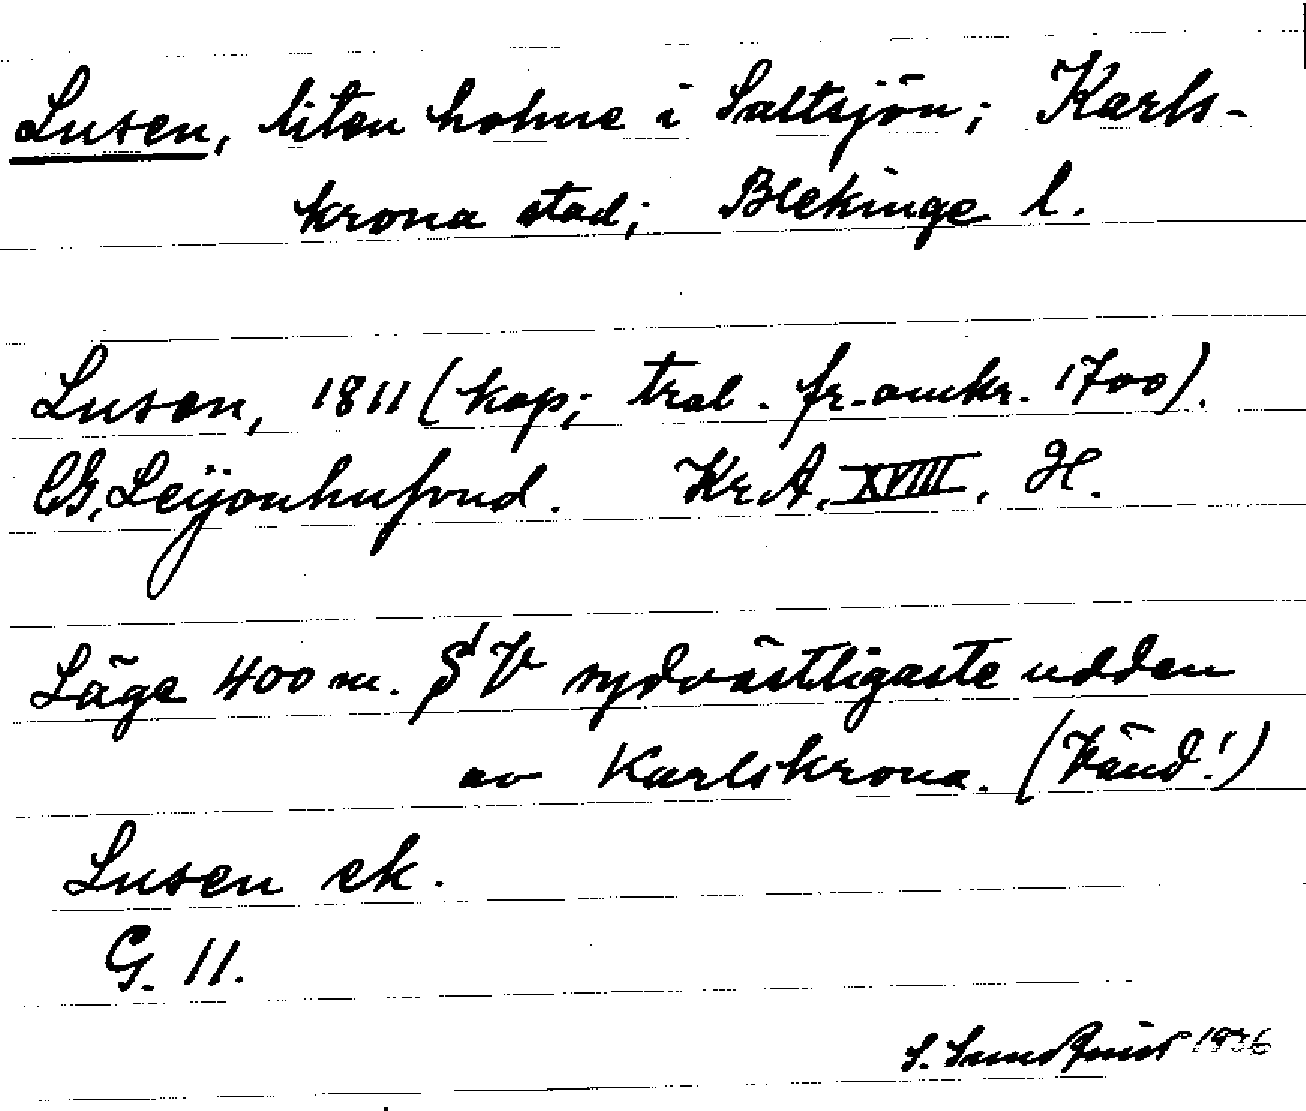 Lusen, liten holme i Saltsjön; Karls-
krona stad; Blekinge l.
Lusen, 1811 (kop; trol. fr. omkr. 1700).
CG. Leijonhufvud. Kr.A. XVIII, H.
Läge 400 m. V sydvästligaste udden
av Karlskrona. (Vänd!)
Lusen ek.
G. 11.
S. Sundqvist 1936